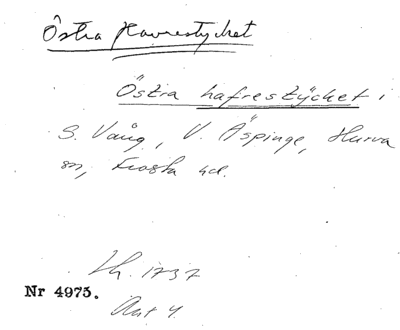 Östra Havrestycket
Östra hafrestÿcket i
S. Vång, V. Äspinge, Hurva
sn, Frosta hd.
Lh. 1737
Nr 4975.
Akt 4.